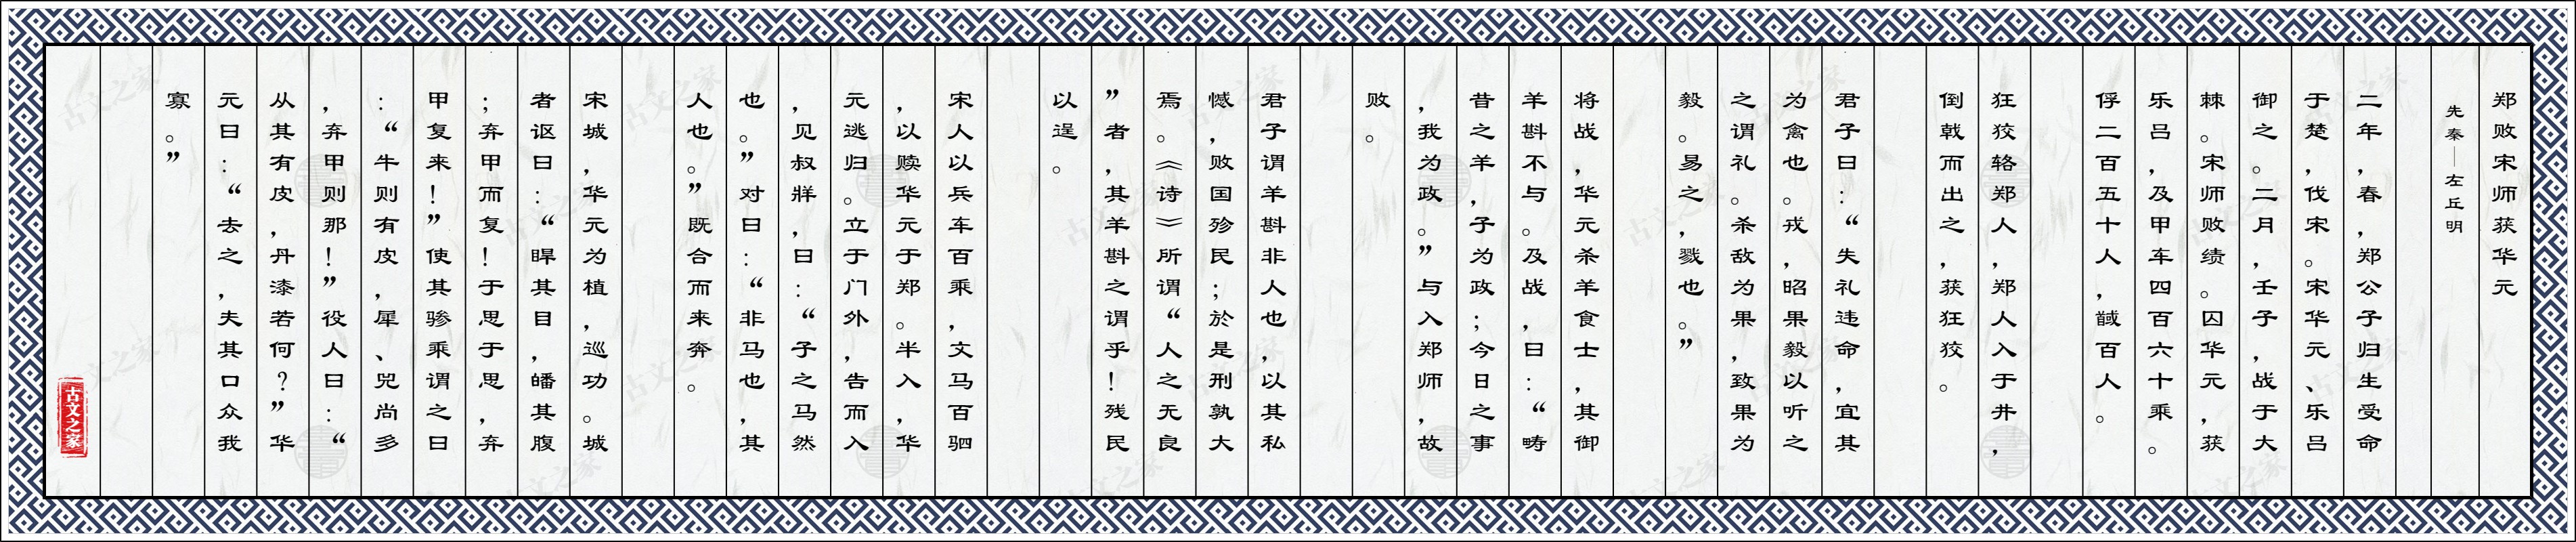 郑败宋师获华元
先秦—左丘明
二年，春，郑公子归生受命
于楚，伐宋。宋华元、乐吕
御之。二月，壬子，战于大
棘。宋师败绩。囚华元，获
乐吕，及甲车四百六十乘。
俘二百五十人，馘百人。
狂狡辂郑人，郑人入于井，
倒戟而出之，获狂狡。
君子曰：“失礼违命，宜其
为禽也。戎，昭果毅以听之
之谓礼。杀敌为果，致果为
毅。易之，戮也。”
将战，华元杀羊食士，其御
羊斟不与。及战，曰：“畴
昔之羊，子为政；今日之事
，我为政。”与入郑师，故
败。
君子谓羊斟非人也，以其私
憾，败国殄民；於是刑孰大
焉。《诗》所谓“人之无良
”者，其羊斟之谓乎！残民
以逞。
宋人以兵车百乘，文马百驷
，以赎华元于郑。半入，华
元逃归。立于门外，告而入
，见叔牂，曰：“子之马然
也。”对曰：“非马也，其
人也。”既合而来奔。
宋城，华元为植，巡功。城
者讴曰：“睅其目，皤其腹
；弃甲而复！于思于思，弃
甲复来！”使其骖乘谓之曰
：“牛则有皮，犀、兕尚多
，弃甲则那！”役人曰：“
从其有皮，丹漆若何？”华
元曰：“去之，夫其口众我
寡。”
古文之家